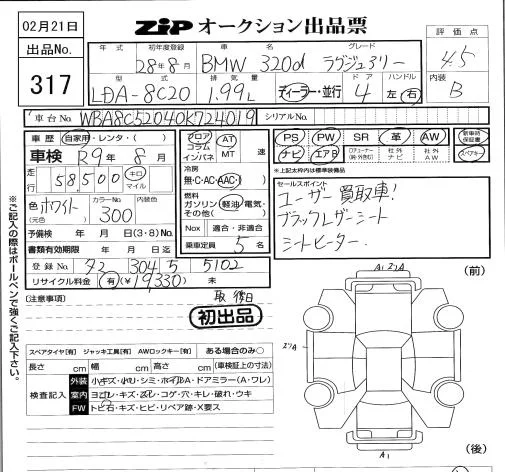 02月21日
ZIP オークション出品票
出品No.
317
年式 初年度登録 車名 グレード
28年8月 BMW 320d ラグジュアリー
評価点
4.5
型式 排気量 ドア ハンドル
LDA-8C20 1.99L ディーラー・並行 4 左 右
内装
B
車台No. WBA8C52040K724019 シリアルNo.
車歴 自家用・レンタ・( )
車検 R9年 8月
走行 58,500 キロ マイル
色 ホワイト (元色) カラーNo. 300 内装色
予備検 年 月 日(3・8)No.
書類有効期限 年 月 日
登録No. 304 5 5102
リサイクル料金 有(¥19330) 未
フロア コラム インパネ AT MT 速
冷房
無・C・AC・AAC・( )
燃料
ガソリン・軽油・電気・その他( )
Nox 適合・非適合
乗車定員 5名
PS PW SR 革 AW 新車時保証書
ナビ エアB 社外ナビ 社外AW スペアキー
※上記太枠内は標準装備品
セールスポイント
ユーザー買取車!
ブラックレザーシート
シートヒーター.
(注意事項)
初出品
スペアタイヤ[有] ジャッキ工具[有] AWロックキー[有] ある場合のみ○
長さ cm 幅 cm 高さ cm (車検証上の寸法)
検査記入
外装 小キズ・小ハリ・シミ・ホイルA・ドアミラー(A・ワレ)
室内 ヨゴレ・キズ・スレ・コゲ・穴・キレ・破れ・ウキ
FW トビ石・キズ・ヒビ・リペア跡・X要ス
※ご記入の際はボールペンで強くご記入下さい。
A1 2リA
(前)
2リA
A1
(後)